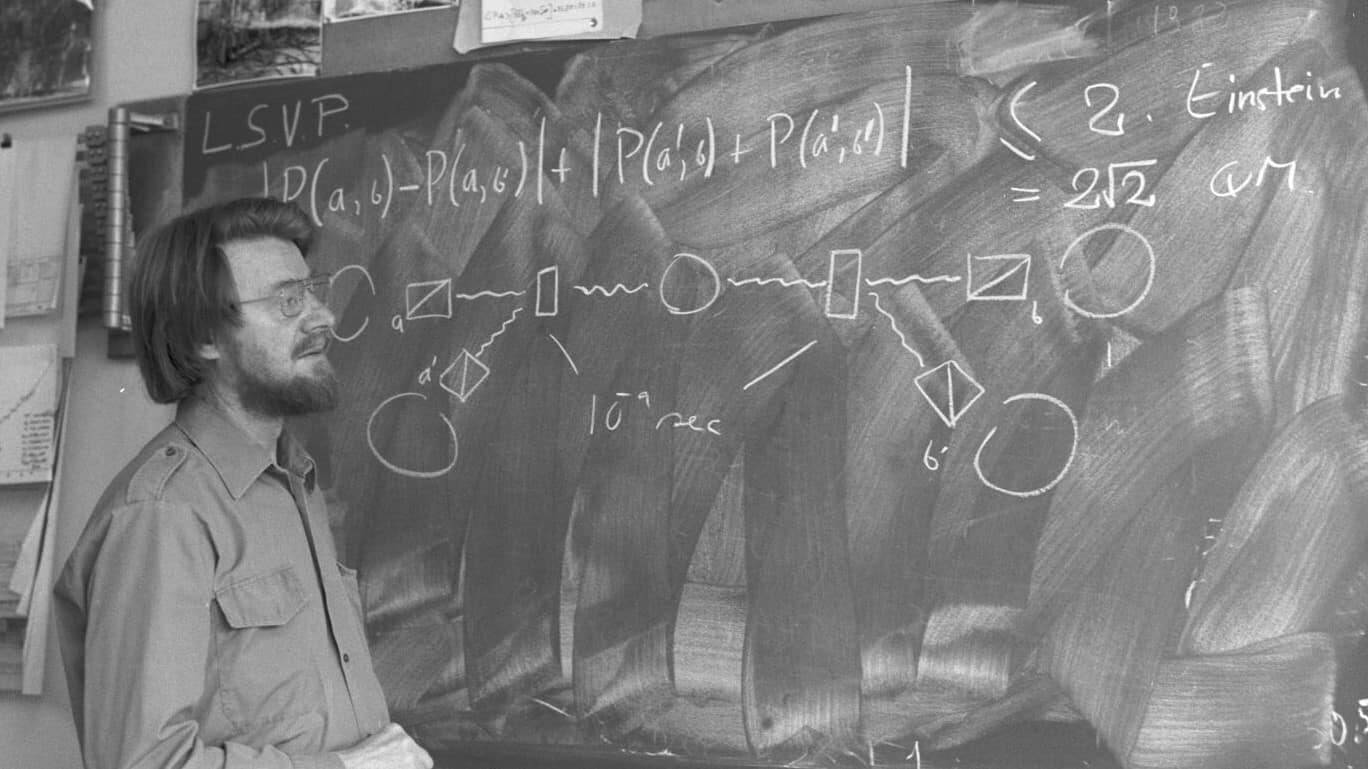 L.S.V.P.
|P(a,b)-P(a,b')|+|P(a',b)+P(a',b')| < 2. Einstein
= 2√2 QM
a
b
a'
10⁻⁹ sec
b'